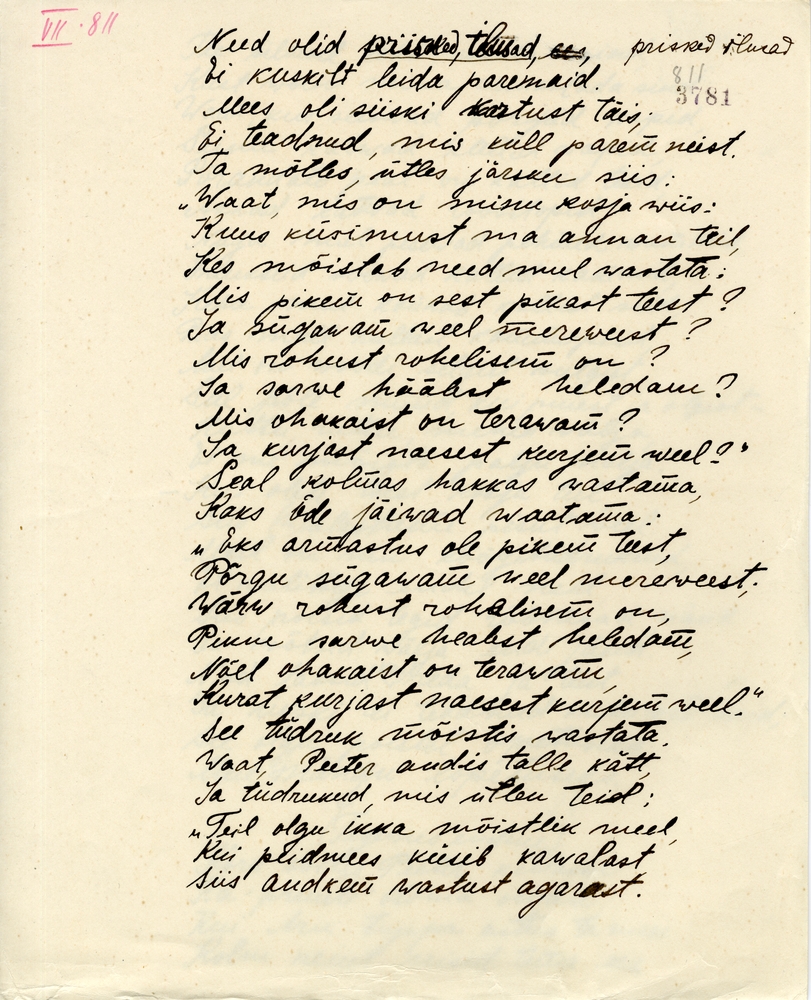 VII · 811
Need olid prisked, ilusad, prisked ilusad
Ei kuskilt leida paremaid.
811
3781
Mees oli siiski kartust täis;
Ei teadnud, mis küll parem neist.
Ta mõtles, ütles järsku siis:
„Waat, mis on minu kosja wiis:
Kuus küsimust ma annan teil,
Kes mõistab need mul wastata:
Mis pikem on sest pikast teest?
Ja sügawam weel mereweest?
Mis rohust rohelisem on?
Ja sarwe häälest heledam?
Mis ohakaist on terawam?
Ja kurjast naesest kurjem weel?"
Seal kolmas hakkas wastama,
Kaks õde jäiwad waatama:
„Eks armastus ole pikem teest,
Põrgu sügawam weel mereweest;
Wärw rohust rohelisem on,
Pikne sarwe healest heledam,
Nõel ohakaist on terawam,
Kurat kurjast naesest kurjem weel."
See tüdruk mõistis wastata,
Waat, Peeter andis talle kätt,
Ja tüdrukud, mis ütlen teid:
„Teil olgu ikka mõistlik meel,
Kui peidmees küsib kawalast,
Siis andkem wastust agarast.